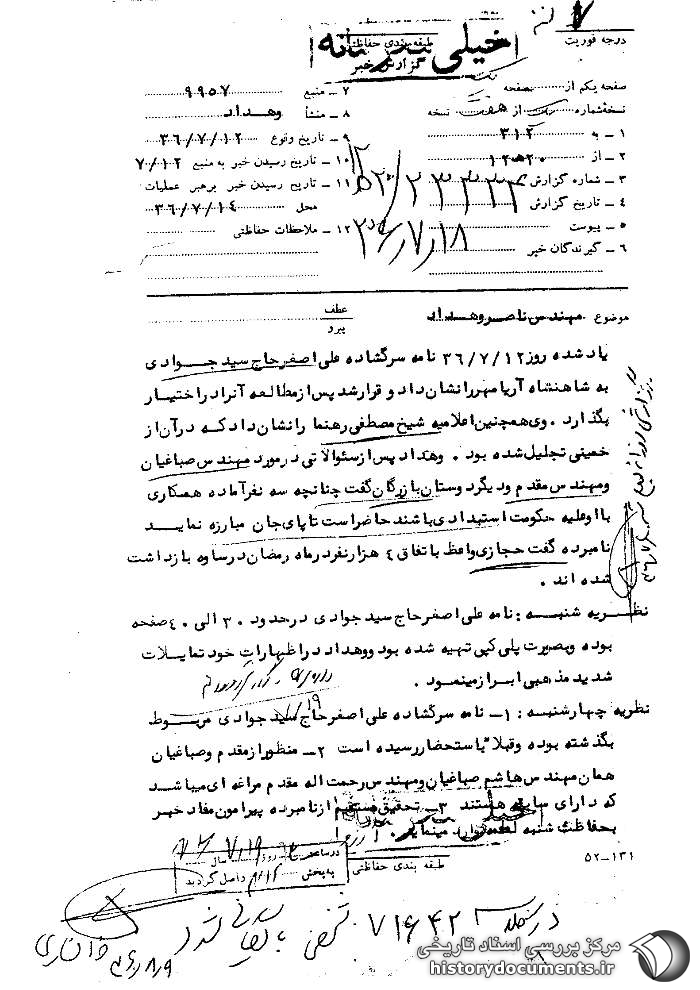 درجه فوریت
خیلی محرمانه
طبقه بندی حفاظتی
گزارش خبر
صفحه یکم از صفحه
نسخه شماره یک از هفت نسخه
۱ ـ به ۳۱۲
۲ ـ از ۲۰ ه ۱۲
۳ ـ شماره گزارش
۴ ـ تاریخ گزارش
۵ ـ پیوست
۶ ـ گیرندگان خبر
۷ ـ منبع ۹۹۵۷
۸ ـ منشأ وهداد
۹ ـ تاریخ وقوع ۳۶/۷/۱۲
۱۰ ـ تاریخ رسیدن خبر به منبع ۷/۱۲
۱۱ ـ تاریخ رسیدن خبر برهبر عملیات
محل ۳۶/۷/۱۴
۱۲ ـ ملاحظات حفاظتی
موضوع مهندس ناصر وهداد
عطف
پیرو
یاد شده روز ۳۶/۷/۱۲ نامه سرگشاده علی اصغر حاج سید جوادی
به شاهنشاه آریا مهر را نشان داد و قرار شد پس از مطالعه آنرا در اختیار
بگذارد . وی همچنین اعلامیه شیخ مصطفی رهنما را نشان داد که در آن از
خمینی تجلیل شده بود . وهداد پس از سئوالاتی در مورد مهندس صباغیان
و مهندس مقدم و دیگر دوستان بازرگان گفت چنانچه سه نفر آماده همکاری
با او علیه حکومت استبدادی باشند حاضر است تا پای جان مبارزه نماید
نامبرده گفت حجازی واعظ باتفاق ۴ هزار نفر در ماه رمضان در ساوه بازداشت
شده اند .
نظریه شنبه : نامه علی اصغر حاج سید جوادی در حدود ۳۰ الی ۴۰ صفحه
بوده و بصورت پلی کپی تهیه شده بود و وهداد در اظهارات خود تمایلات
شدید مذهبی ابراز مینمود .
نظریه چهارشنبه : ۱ـ نامه سرگشاده علی اصغر حاج سید جوادی مربوط
بگذشته بوده و قبلا" باستحضار رسیده است ۲ـ منظور از مقدم و صباغیان
همان مهندس هاشم صباغیان و مهندس رحمت اله مقدم مراغه ای میباشد
که دارای سابقه هستند ۳ـ تحقیق مستقیم از نامبرده پیرامون مفاد خبر
بحفاظت شنبه لطمه وارد مینماید .
خیلی محرمانه
طبقه بندی حفاظتی
۵۲–۱۳۱
در ساعت روز سال
به بخش ۳۱۲ واصل گردید
۷۱۶۴۲
مرکز بررسی اسناد تاریخی
historydocuments.ir